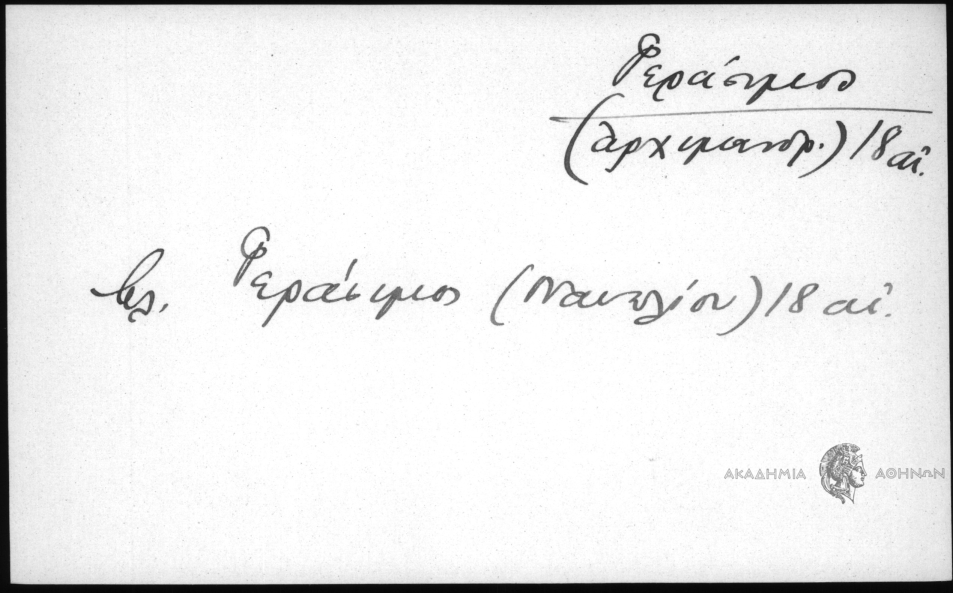 Γεράσιμος
(ἀρχιμανδρ.) 18 αἰ.
βλ. Γεράσιμος (Ναυπλίου) 18 αἰ.
ΑΚΑΔΗΜΙΑ ΑΘΗΝΩΝ